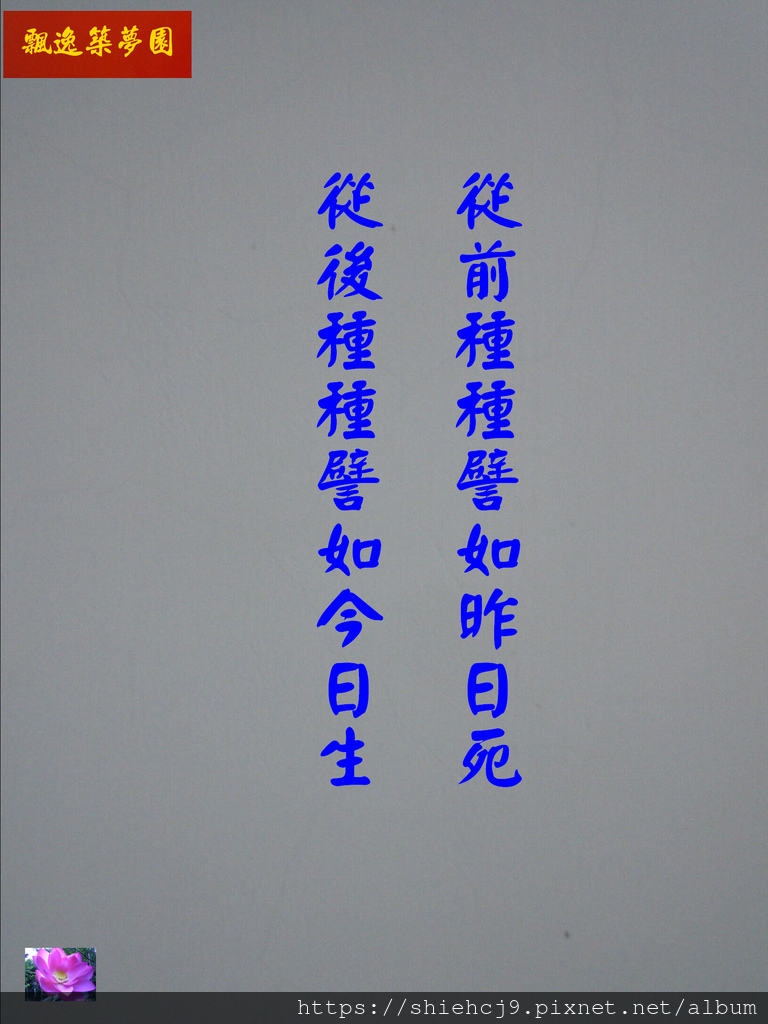 飄逸築夢園
從前種種譬如昨日死
從後種種譬如今日生
https://shiehcj9.pixnet.net/album